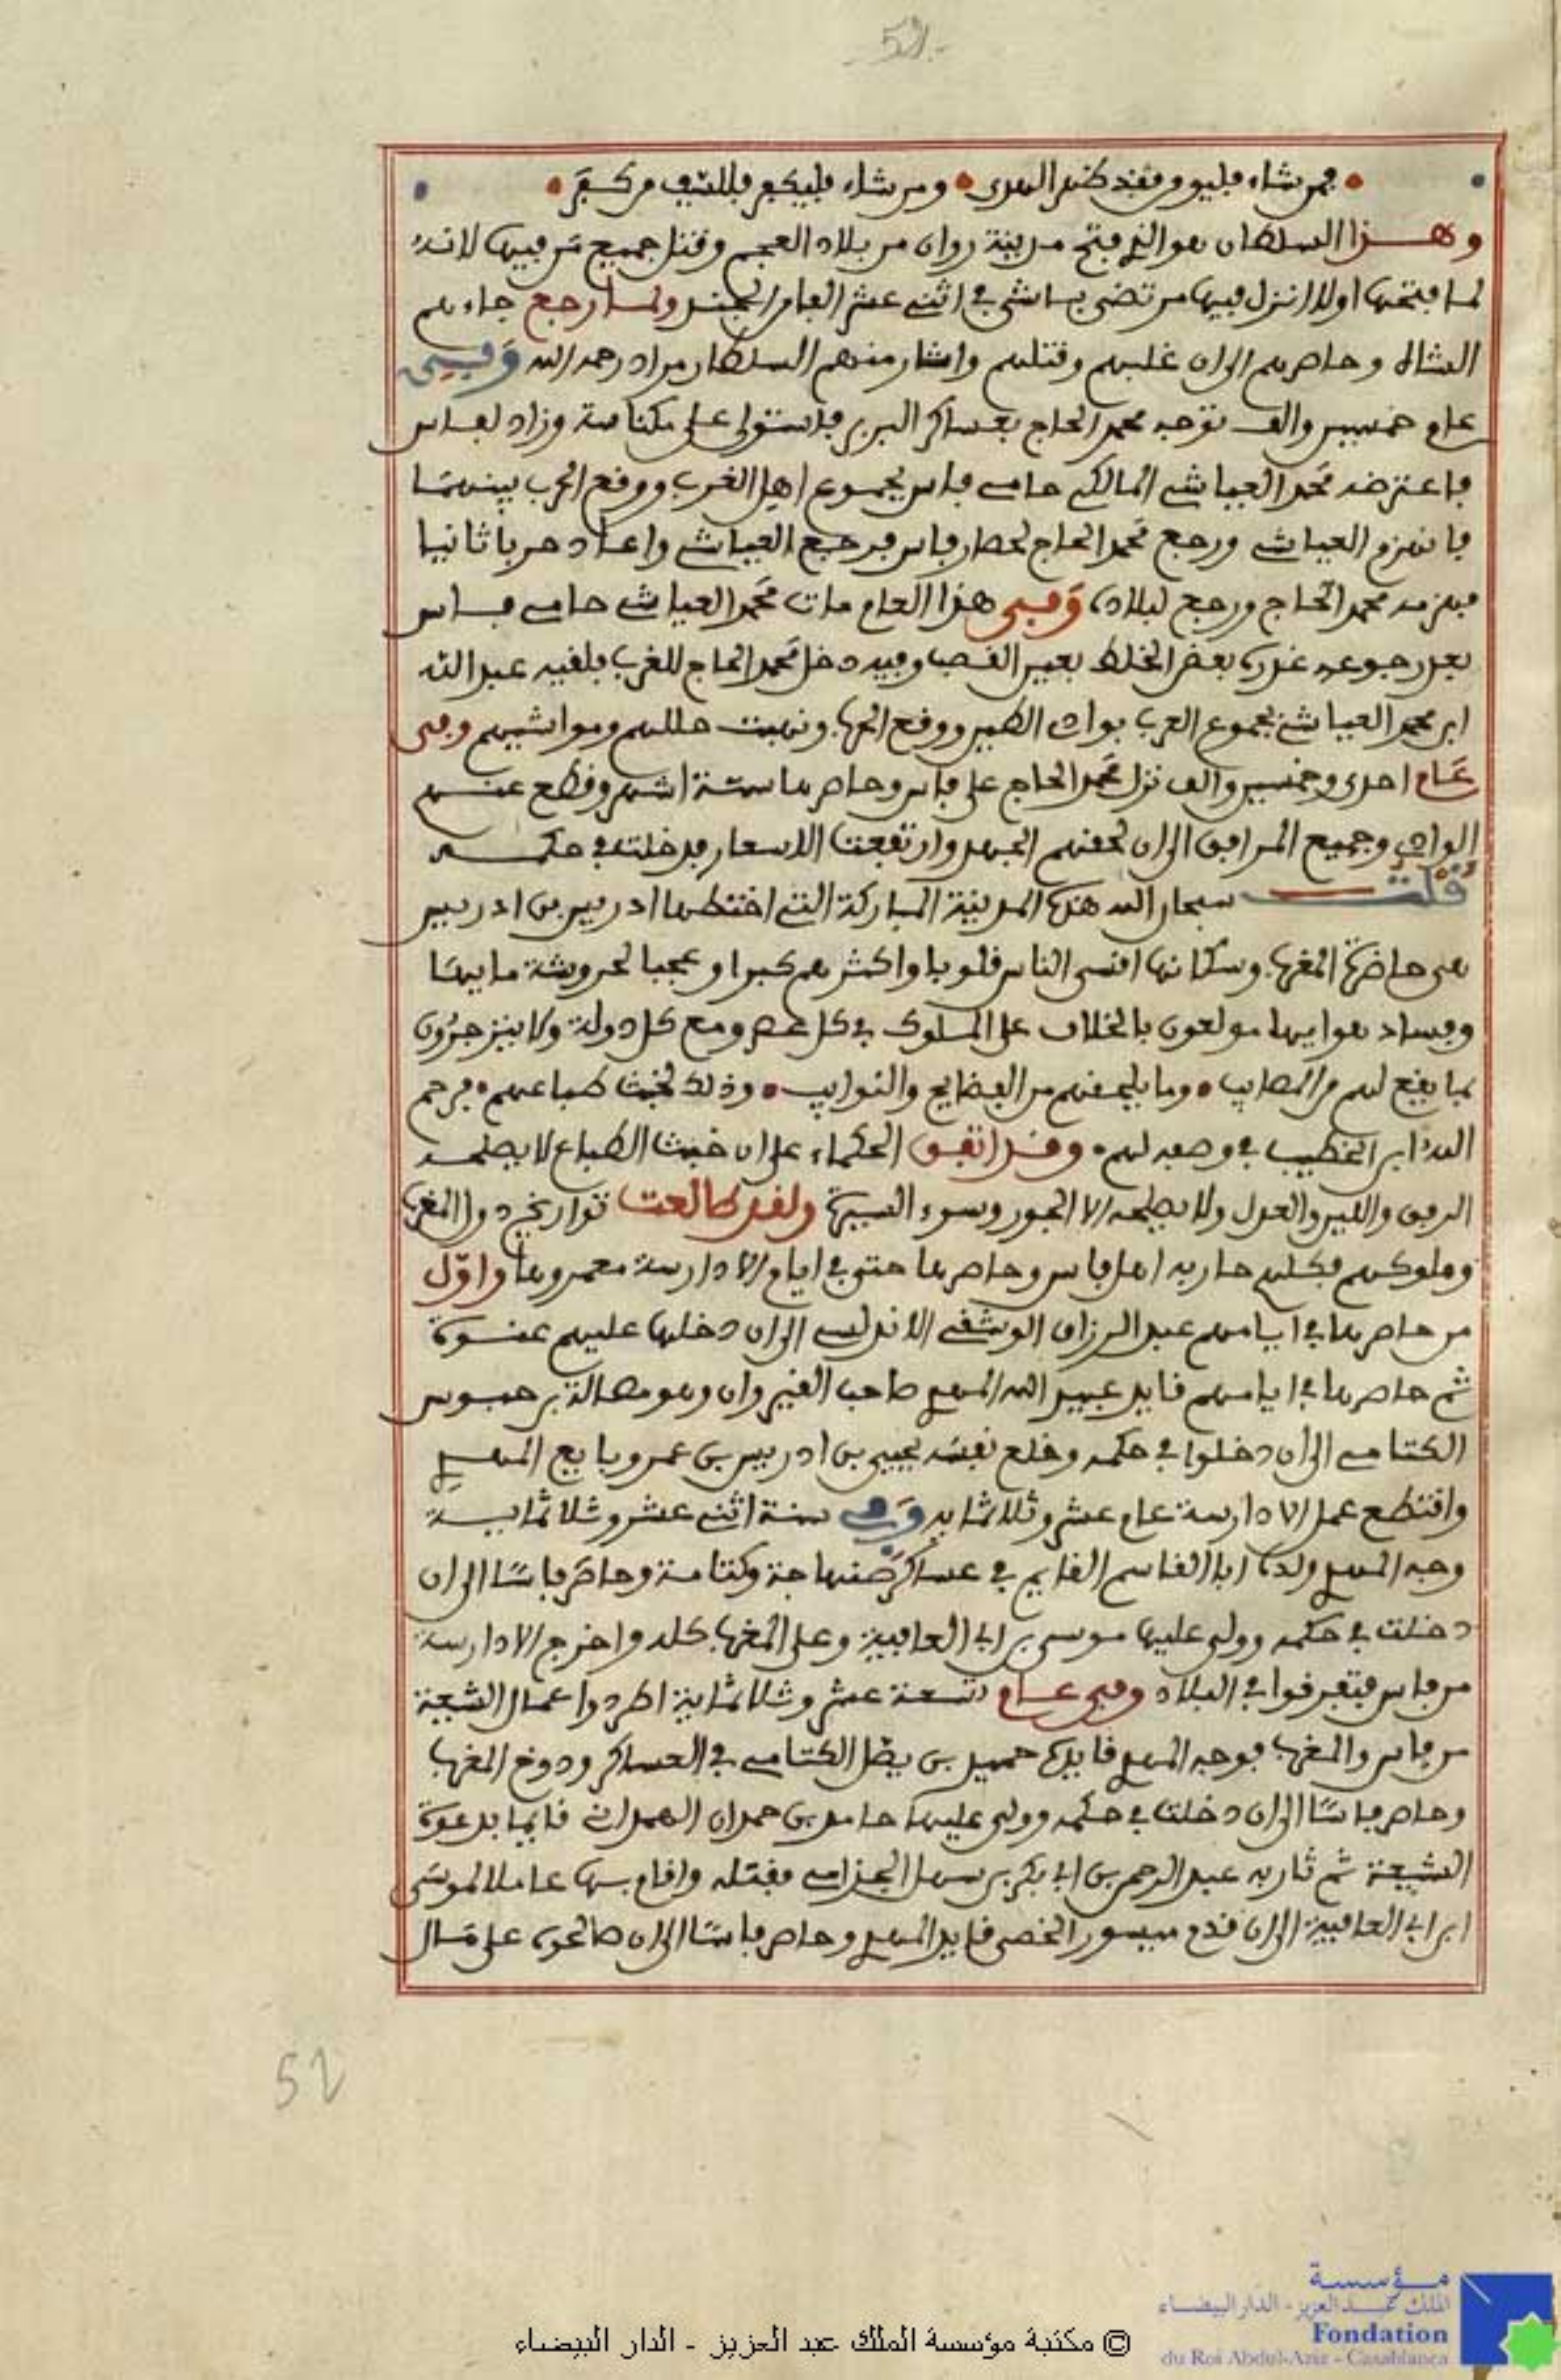 52
فمن شاء فليومن فقد ظهر الهدى • ومن شاء فليكفر فللسيف من كفر •
وهذا السلطان هو الذي فتح مدينة روان من بلاد العجم وقتل جميع من فيها لانه
لما فتحها اولا انزل فيها مرتضى باشى في اثنى عشر الفا من الجند ولما رجع جاءهم
الشاه وحاصرهم الى ان غلبهم وقتلهم واشار منهم السلطان مراد رحمه الله وفي
عام خمسين والف توجه محمد الحاج بعساكر البربر فاستولى على مكناسة وزاد لفاس
فاعترضه محمد العياشي المالكي حامي فاس بجموع اهل الغرب ووقع الحرب بينهما
فانهزم العياشي ورجع محمد الحاج لحصار فاس فرجع العياشي واعاد حربا ثانيا
فهزمه محمد الحاج ورجع لبلاده وفي هذا العام مات محمد العياشي حامي فاس
بعد رجوعه غدره بعض الخلط بعين القصب وفيه دخل محمد الحاج للغرب فلقيه عبد الله
ابن محمد العياشي بجموع العرب بوادي الطين ووقع الحرب ونهبت حللهم ومواشيهم وفي
عام احدى وخمسين والف نزل محمد الحاج على فاس وحاصرها ستة اشهر وقطع عنهم
الوادي وجميع المرافق الى ان لحقهم الجهد وارتفعت الاسعار فدخلت في حكمه
قلت سبحان الله هذه المدينة المباركة التي اختطها ادريس بن ادريس
هي حاضرة المغرب وسكانها اقسى الناس قلوبا واكثرهم كبرا وعجبا لحروشة مايها
وفساد هوايها مولعون بالخلاف على الملوك في كل عصر ومع كل دولة ولا ينزجرون
بما يقع لهم من المصايب • وما يلحقهم من الفضايح والنوايب • وذلك لخبث طباعهم • فرحم
الله ابن الخطيب في وصفه لهم • وقد اتفق الحكماء على ان خبث الطباع لا يصلحه
الرفق واللين والعدل ولا يصلحه الا الجور وسوء السيرة ولقد طالعت تواريخ دول المغرب
وملوكهم فكلهم حاربه اهل فاس وحاصرها حتى في ايام الادارسة معمروها واول
من حاصرها في ايامهم عبد الرزاق الوشقي الاندلسي الى ان دخلها عليهم عنوة
ثم حاصرها في ايامهم قايد عبيد الله المهدي صاحب القيروان وهو مصالة بن حبوس
الكتامي الى ان دخلوا في حكمه وخلع نفسه يحيى بن ادريس بن عمر وبايع المهدي
واقتطع عمل الادارسة عام عشر وثلاثمايه وفي سنة اثني عشر وثلاثماية
وجه المهدي ولده ابا القاسم القايم في عساكر صنهاجة وكتامة وحاصر فاسا الى ان
دخلت في حكمه وولى عليها موسى بن ابي العافية وعلى المغرب كله واخرج الادارسة
من فاس فتفرقوا في البلاد وفي عام تسعة عشر وثلاثماية اطردوا عمال الشيعة
من فاس والمغرب فوجه المهدي قايده حميد بن يصل الكتامي في العساكر ودوخ المغرب
وحاصر فاسا الى ان دخلت في حكمه وولى عليها حامد بن حمدان الهمداني قايما بدعوة
الشيعة ثم ثار به عبد الرحمن بن ابي بكر بن سهل الجذامي فقتله واقام بها عاملا لموسى
ابن ابي العافية الى ان قدم ميسور الخصي قايد المهدي وحاصر فاسا الى ان صالحوه على مال
52
مؤسسة
الملك عبد العزيز - الدار البيضاء
Fondation
du Roi Abdul-Aziz - Casablanca
© مكتبة مؤسسة الملك عبد العزيز - الدار البيضاء